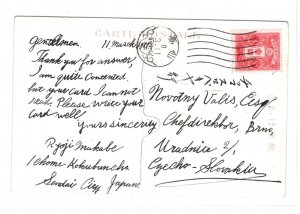 CARTE POSTALE
Gentlemen 11, March 193
Thank you for answer,
I am quite contented.
but your card I can not
read. Please write your
card well!
yours sincerely
Ryoji Makabe
1 chome Kokubuncho
Sendai City Japan
Novotny Valis, Esq.
Chefdirektor, Brno,
Uradnia 2/,
Czecho-Slovakia